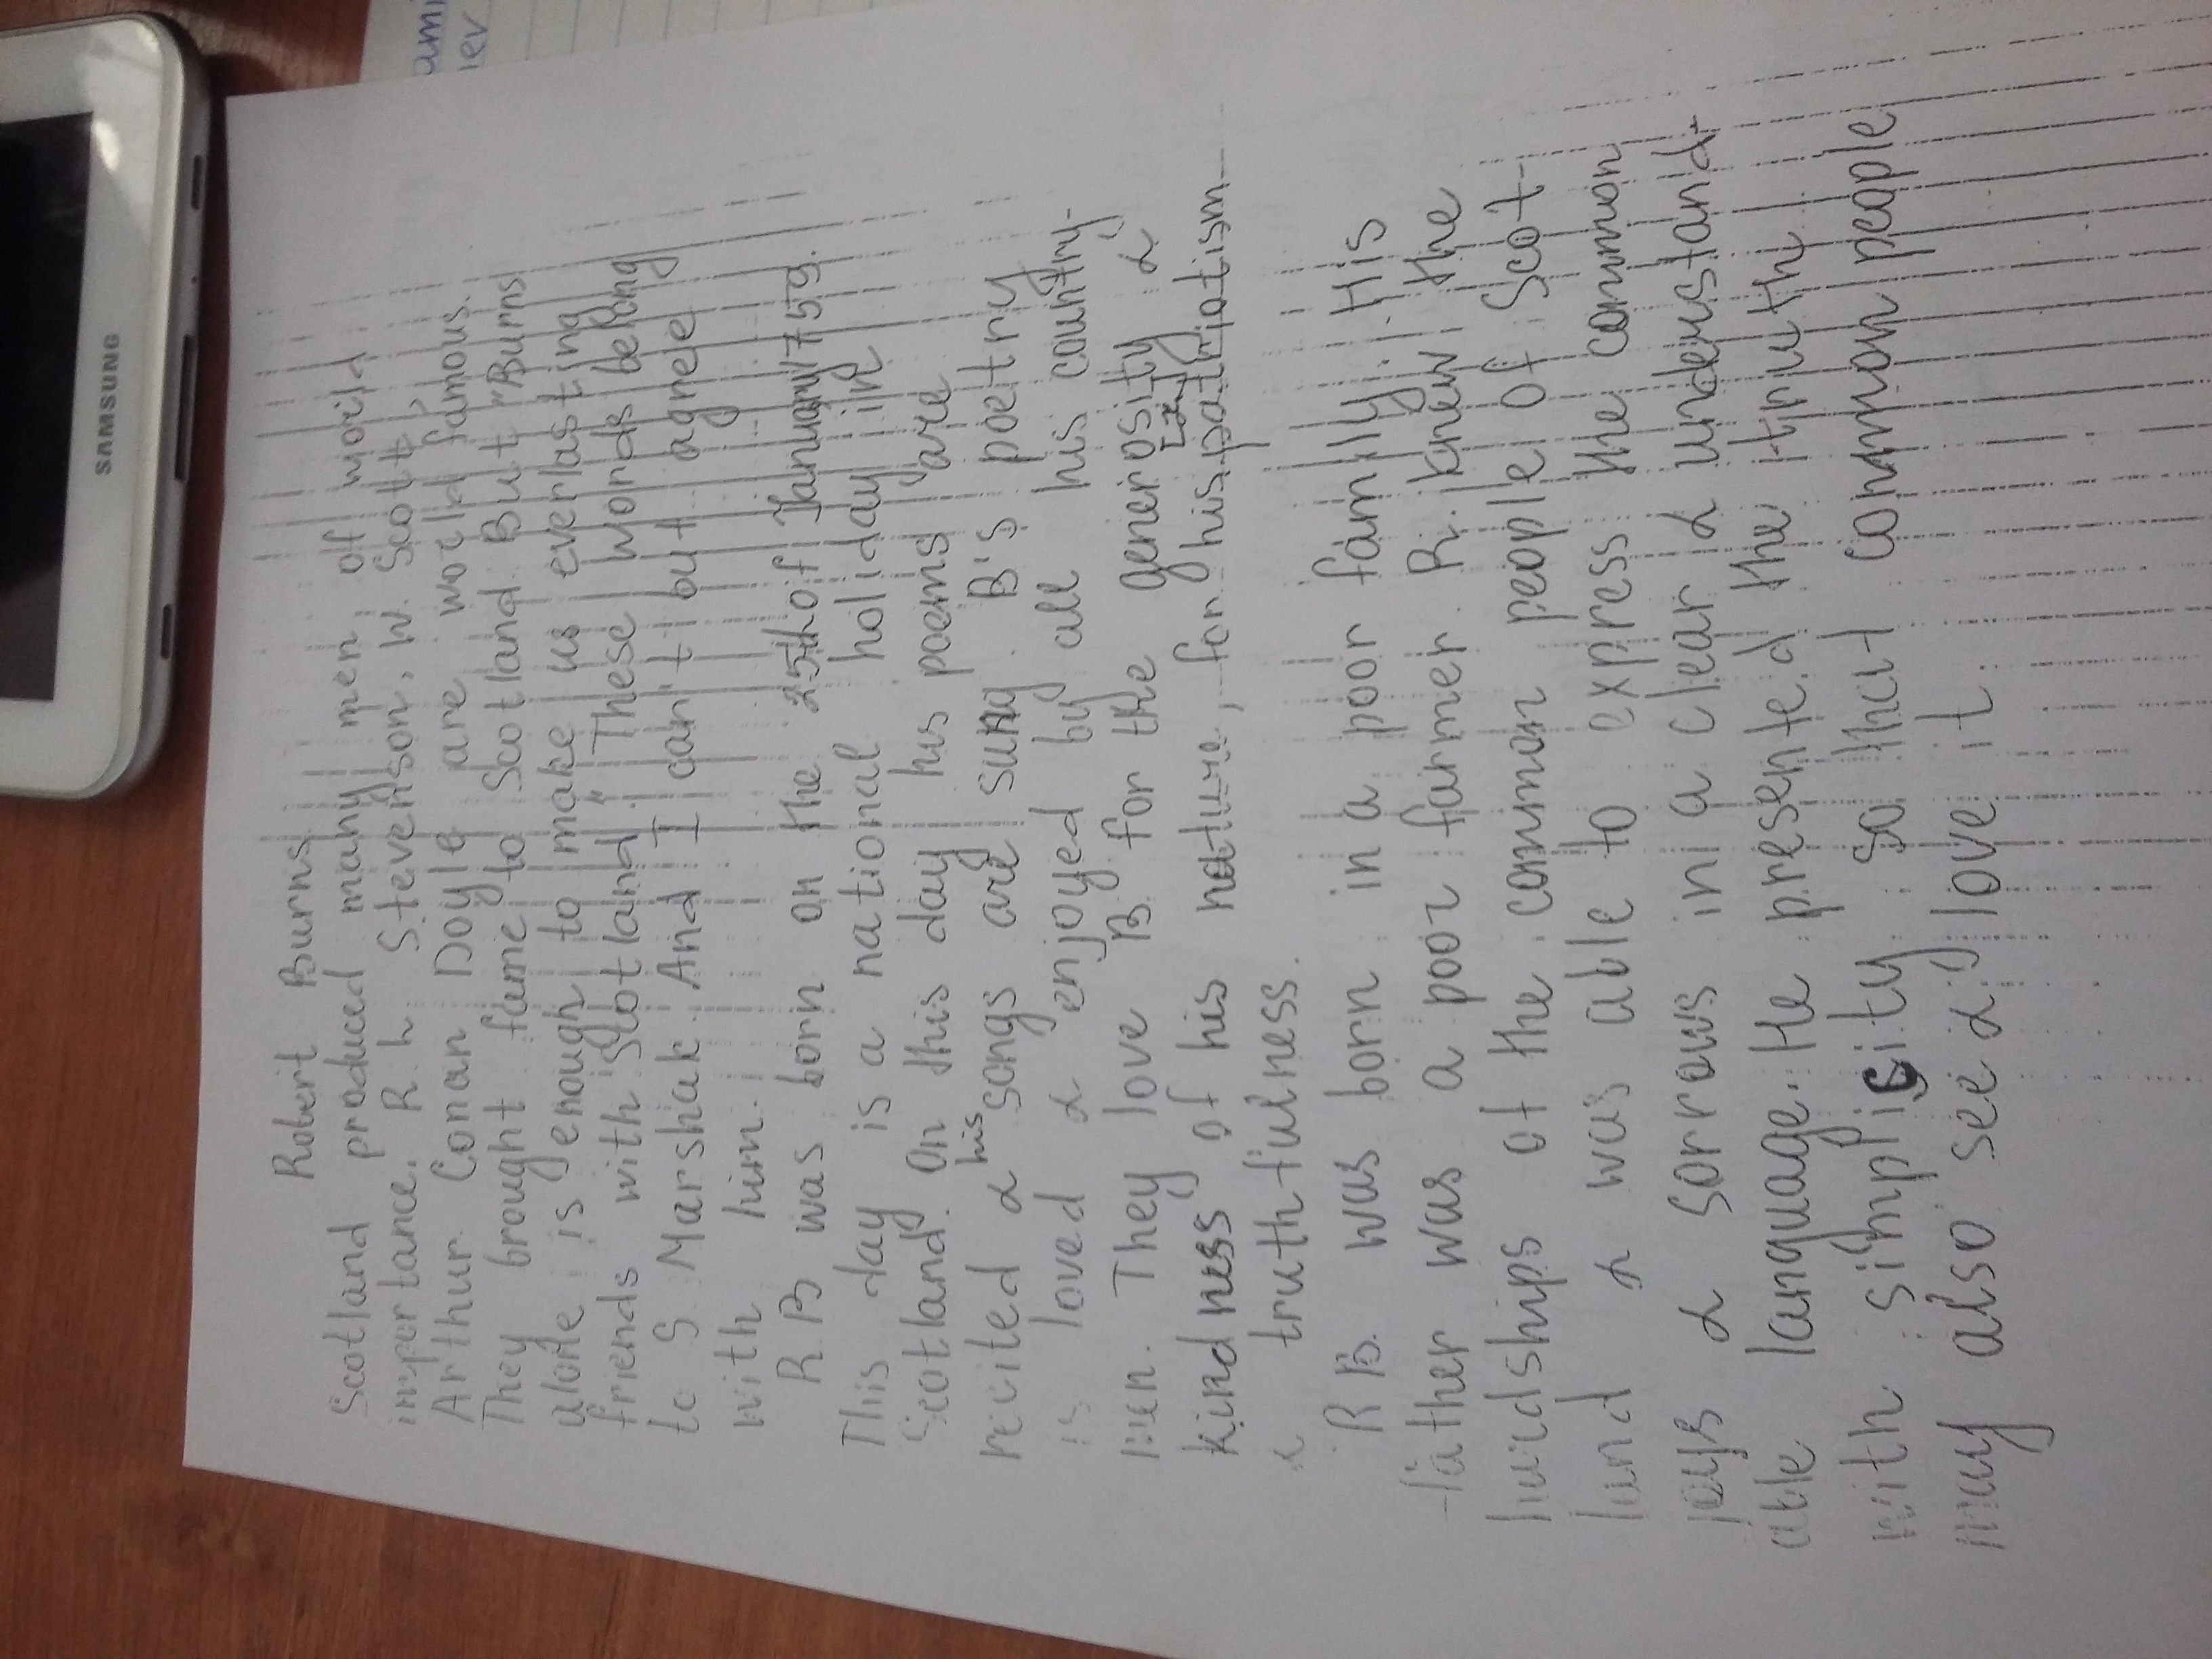 Robert Burns
Scotland produced many men of world
importance. R. L. Stevenson, W. Scott,
Arthur Conan Doyle are world famous.
They brought fame to Scotland. But "Burns
alone is enough to make us everlasting
friends with Scotland." These words belong
to S. Marshak. And I can't but agree
with him.
R. B was born on the 25th of January 1759.
This day is a national holiday in
Scotland. On this day his poems are
recited & his songs are sung. B's poetry
is loved & enjoyed by all his country-
men. They love B. for the generosity &
kindness of his nature, for his patriotism
& truthfulness.
R. B. was born in a poor family. His
father was a poor farmer. R. knew the
hardships of the common people of Scot-
land & was able to express the common
joys & sorrows in a clear & understand-
able language. He presented the truth
with simplicity so that common people
may also see & love it.
SAMSUNG